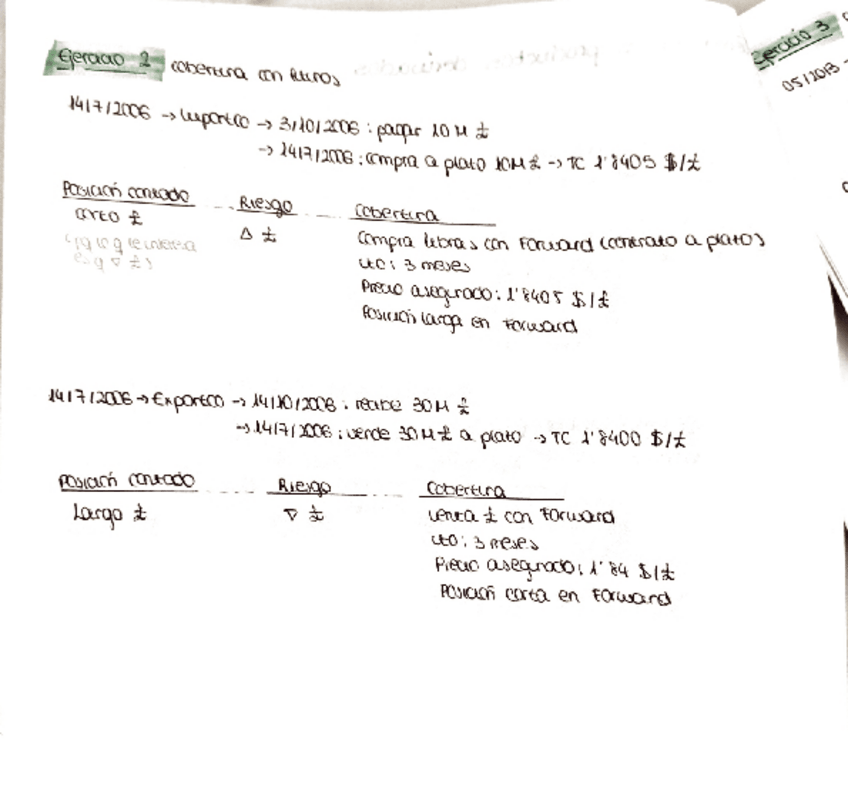 Ejercicio 2 cobertura con futuros
14/7/2006 → ImportCO → 3/10/2006: pagar 10 M £
→ 14/7/2006: compra a plazo 10M £ → TC 1'8405 $/£
Posición contado Riesgo Cobertura
corto £ Δ £ Compra libras con Forward (contrato a plazo)
(q lo q le interesa
es q ∇ £)
vto: 3 meses
Precio asegurado: 1'8405 $/£
Posición larga en Forward
14/7/2006 → ExportCO → 14/10/2006: recibe 30M £
→ 14/7/2006: vende 30M £ a plazo → TC 1'8400 $/£
Posición contado Riesgo Cobertura
Largo £ ∇ £ Venta £ con Forward
vto: 3 meses
Precio asegurado: 1'84 $/£
Posición corta en Forward
Ejercicio 3
05/2013 -